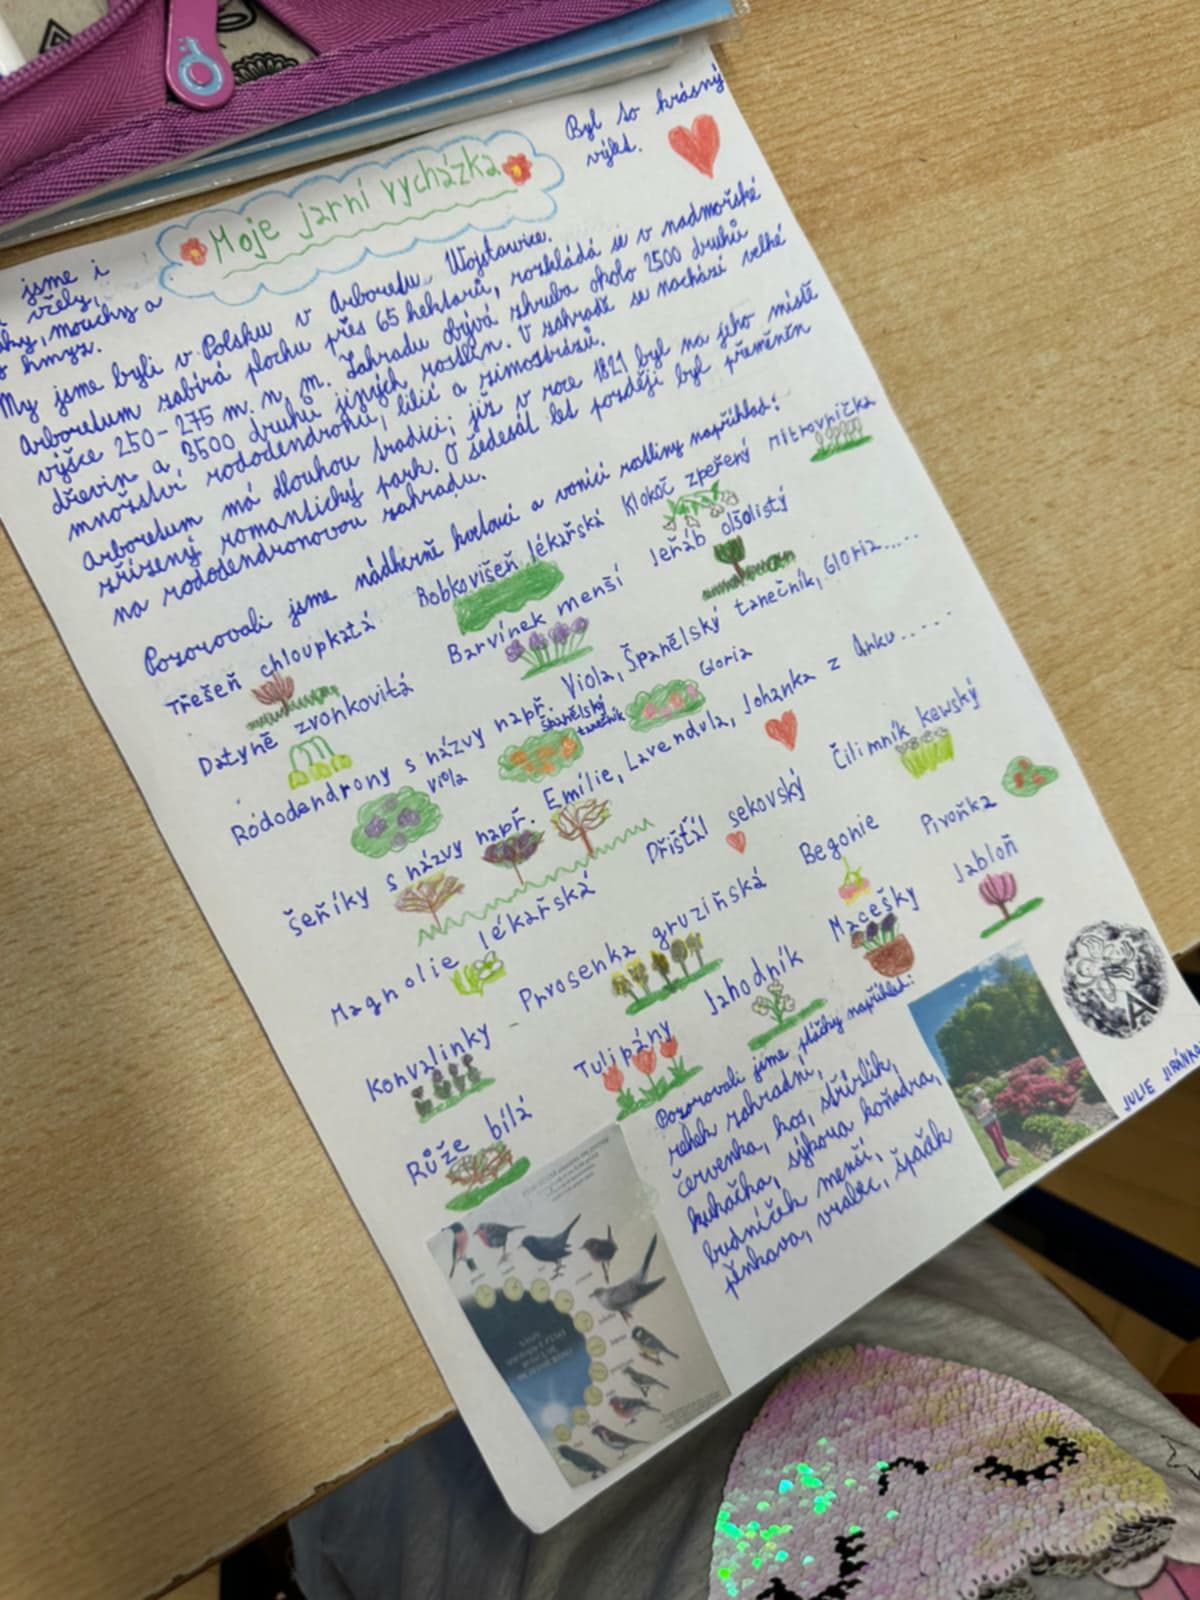 Byl to krásný
výlet.
Moje jarní vycházka
jsme i
včely,
mouchy a
hmyz.
My jsme byli v Polsku v Arboretu Wojsławice.
Arboretum zabírá plochu přes 65 hektarů, rozkládá se v nadmořské
výšce 250-275 m. n. m. Zahradu obývá zhruba okolo 2500 druhů
dřevin a 3500 druhů jiných rostlin. V zahradě se nachází velké
množství rododendronů, lilií a zimostrázů.
Arboretum má dlouhou tradici; již v roce 1821 byl na jeho místě
zřízený romantický park. O šedesát let později byl přeměněn
na rododendronovou zahradu.
Pozorovali jsme nádherně kvetoucí a vonící rostliny například:
Třešeň chloupkatá
Bobkovišeň lékařská
Klokoč zpeřený
Mitrovnička
Datyně zvonkovitá
Barvínek menší
Jeřáb olšolistý
Rododendrony s názvy např. Viola, Španělský tanečník, Gloria.....
viola
španělský
tanečník
Gloria
Šeříky s názvy např. Emílie, Lavendula, Johanka z Arku.....
Magnolie lékařská
Dřišťál sekovský
Čilimník kewský
Konvalinky
Prvosenka gruzínská
Begonie
Pivoňka
Růže bílá
Tulipány
Jahodník
Macešky
Jabloň
Pozorovali jsme ptáčky například:
rehek zahradní,
červenka, kos, střízlík,
kukačka, sýkora koňadra,
budníček menší,
pěnkava, vrabec, špaček
A
JULIE